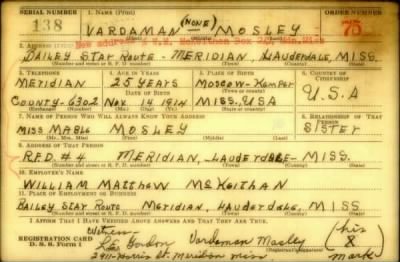 SERIAL NUMBER 1. NAME (Print) ORDER NUMBER
138 VARDAMAN (NONE) MOSLEY 75
(First) (Middle) (Last)
New address
2. ADDRESS (Print)
BAILEY STAR ROUTE - MERIDIAN, LAUDERDALE, MISS.
(Number and street or R. F. D. number) (Town) (County) (State)
3. TELEPHONE 4. AGE IN YEARS 5. PLACE OF BIRTH 6. COUNTRY OF CITIZENSHIP
MERIDIAN 25 YEARS MOSCOW-KEMPER
DATE OF BIRTH U.S.A
COUNTY-6302 NOV. 14 1914 MISS, USA
(Exchange) (Number) (Mo.) (Day) (Yr.) (State or country)
7. NAME OF PERSON WHO WILL ALWAYS KNOW YOUR ADDRESS 8. RELATIONSHIP OF THAT PERSON
MISS MABLE MOSLEY SISTER
(Mr., Mrs., Miss) (First) (Middle) (Last)
9. ADDRESS OF THAT PERSON
R.F.D. #4 MERIDIAN, LAUDERDALE - MISS.
(Number and street or R. F. D. number) (Town) (County) (State)
10. EMPLOYER'S NAME
WILLIAM MATTHEW
11. PLACE OF EMPLOYMENT OR BUSINESS
BAILEY STAR ROUTE MERIDIAN, LAUDERDALE, MISS.
(Number and street or R. F. D. number) (Town) (County) (State)
I AFFIRM THAT I HAVE VERIFIED ABOVE ANSWERS AND THAT THEY ARE TRUE.
Witness- (his
REGISTRATION CARD Gordon Vardaman Mosley X
D. S. S. Form 1 (Registrant's signature) mark)
Meridian Miss